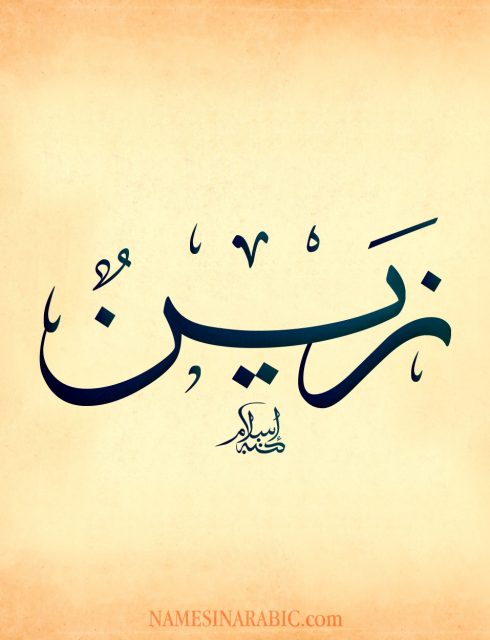 زَيْنٌ
كتبه إسلام
NAMESINARABIC.com